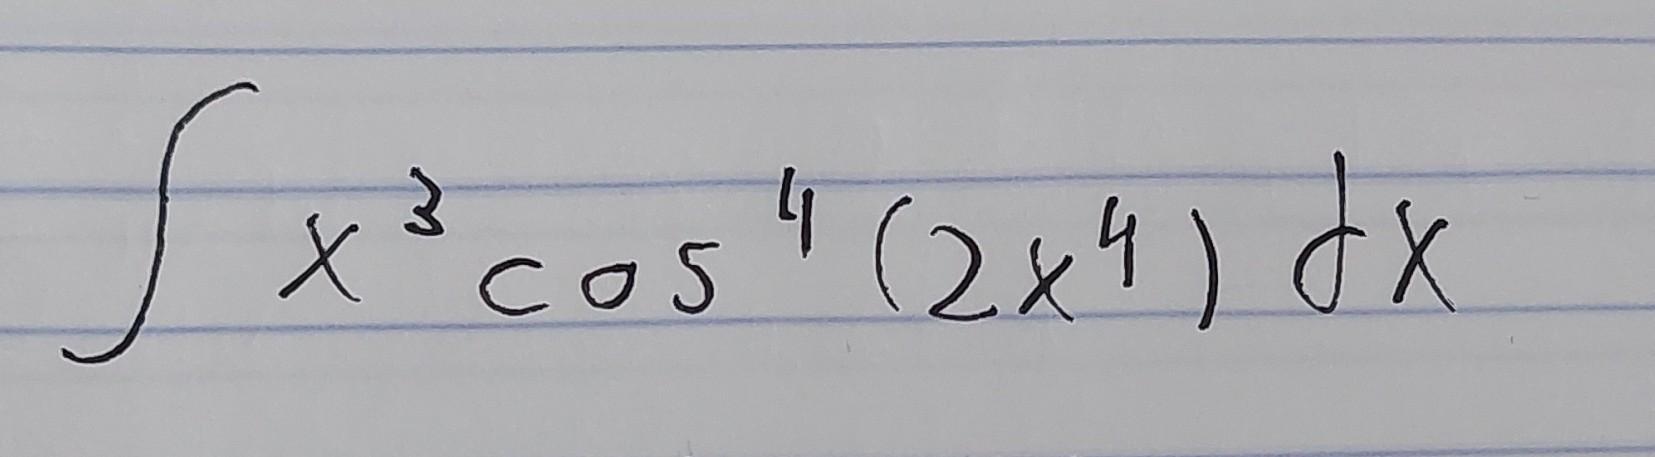 ∫ x³ cos⁴ (2x⁴) dx